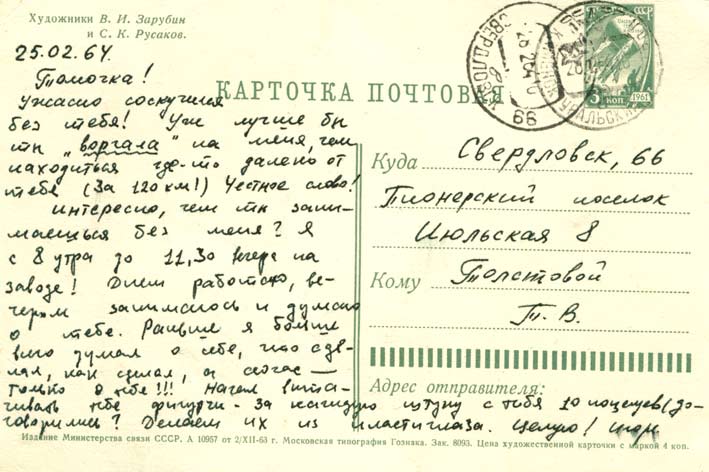 Художники В. И. Зарубин
и С. К. Русаков.
25.02.64.
Томочка!
Ужасно соскучился
без тебя! Уж лучше бы
ты „ворчала" на меня, чем
находиться где-то далеко от
тебя (за 120 км!) Честное слово!
Интересно, чем ты зани-
маешься без меня? Я
с 8 утра до 11,30 вечера на
заводе! Днем работаю, ве-
чером занимаюсь и думаю
о тебе. Раньше я больше
всего думал о себе, что сде-
лал, как сделал, а сейчас —
только о тебе!!! Начал выта-
чивать тебе фигурки. За каждую штуку с тебя 10 поцелуев (до-
говорились? Делаем их из пластиглаза. Целую!
КАРТОЧКА ПОЧТОВАЯ
СССР
3 коп.
1961
СВЕРДЛОВСК
66
УРАЛЬСКАЯ
Куда Свердловск, 66
Пионерский поселок
Июльская 8
Кому Толстовой
Т. В.
Адрес отправителя:
Издание Министерства связи СССР. А 10957 от 2/XII-63 г. Московская типография Гознака. Зак. 8093. Цена художественной карточки с маркой 4 коп.